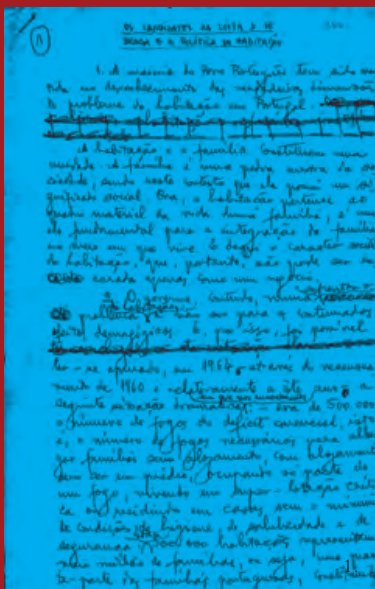 1
OS CANDIDATOS DA LISTA A DE
BRAGA E A POLÍTICA DE HABITAÇÃO
1. A maioria do Povo Português tem sido
no desconhecimento das verdadeiras dimensões
do problema da habitação em Portugal.
A habitação e a família constituem uma
unidade. A família é uma pedra mestra da so
ciedade, sendo neste contexto que ela possui um si
gnificado social. Ora, a habitação pertence ao
quadro material da vida duma família, é um
fundamental para a integração da família
no meio em que vive. E daqui o caracter social
da habitação, que, portanto, não pode ser
encarada apenas como um negócio.
O governo, contudo, nunca
o problema da habitação a não ser para continuados
efeitos demagógicos. E, por isso, foi possível
ter-se apurado, em 1964, através do recensea
mento de 1960 e relativamente a este ano, a
seguinte situação dramática: - era de 500.000
o número de fogos do deficit carencial, isto
é, o número de fogos necessários para alber
gar famílias sem alojamento, com alojamento
sem ser em prédio, ocupando só parte de
um fogo, vivendo em super-lotação críti
ca ou residindo em casas, sem o mínimo
de condições de higiene, de salubridade e de
segurança. 500.000 habitações representam
meio milhão de famílias, ou seja, uma quar
ta-parte das famílias portuguesas,